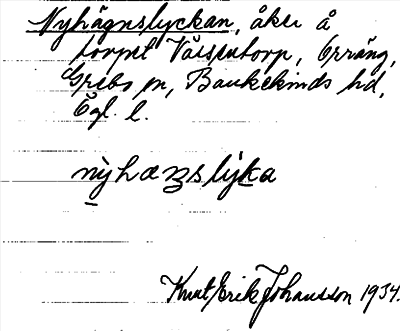 Nyhägnslyckan, åker å
torpet Väsentorp, Orräng,
Grebo sn, Bankekinds hd,
Ögl. l.
nyhaŋslyka
Knut Erik Johansson 1934.